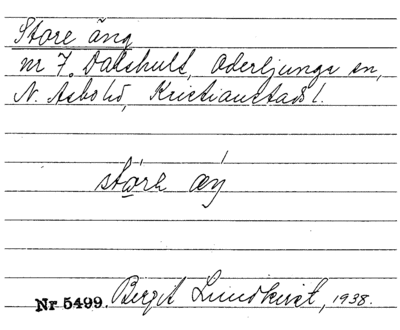 Store äng
nr 7. Dalshult, Oderljunga sn,
N. Åsbo hd, Kristianstads l.
störe æŋ
Nr 5499. Birgit Lundkvist, 1938.